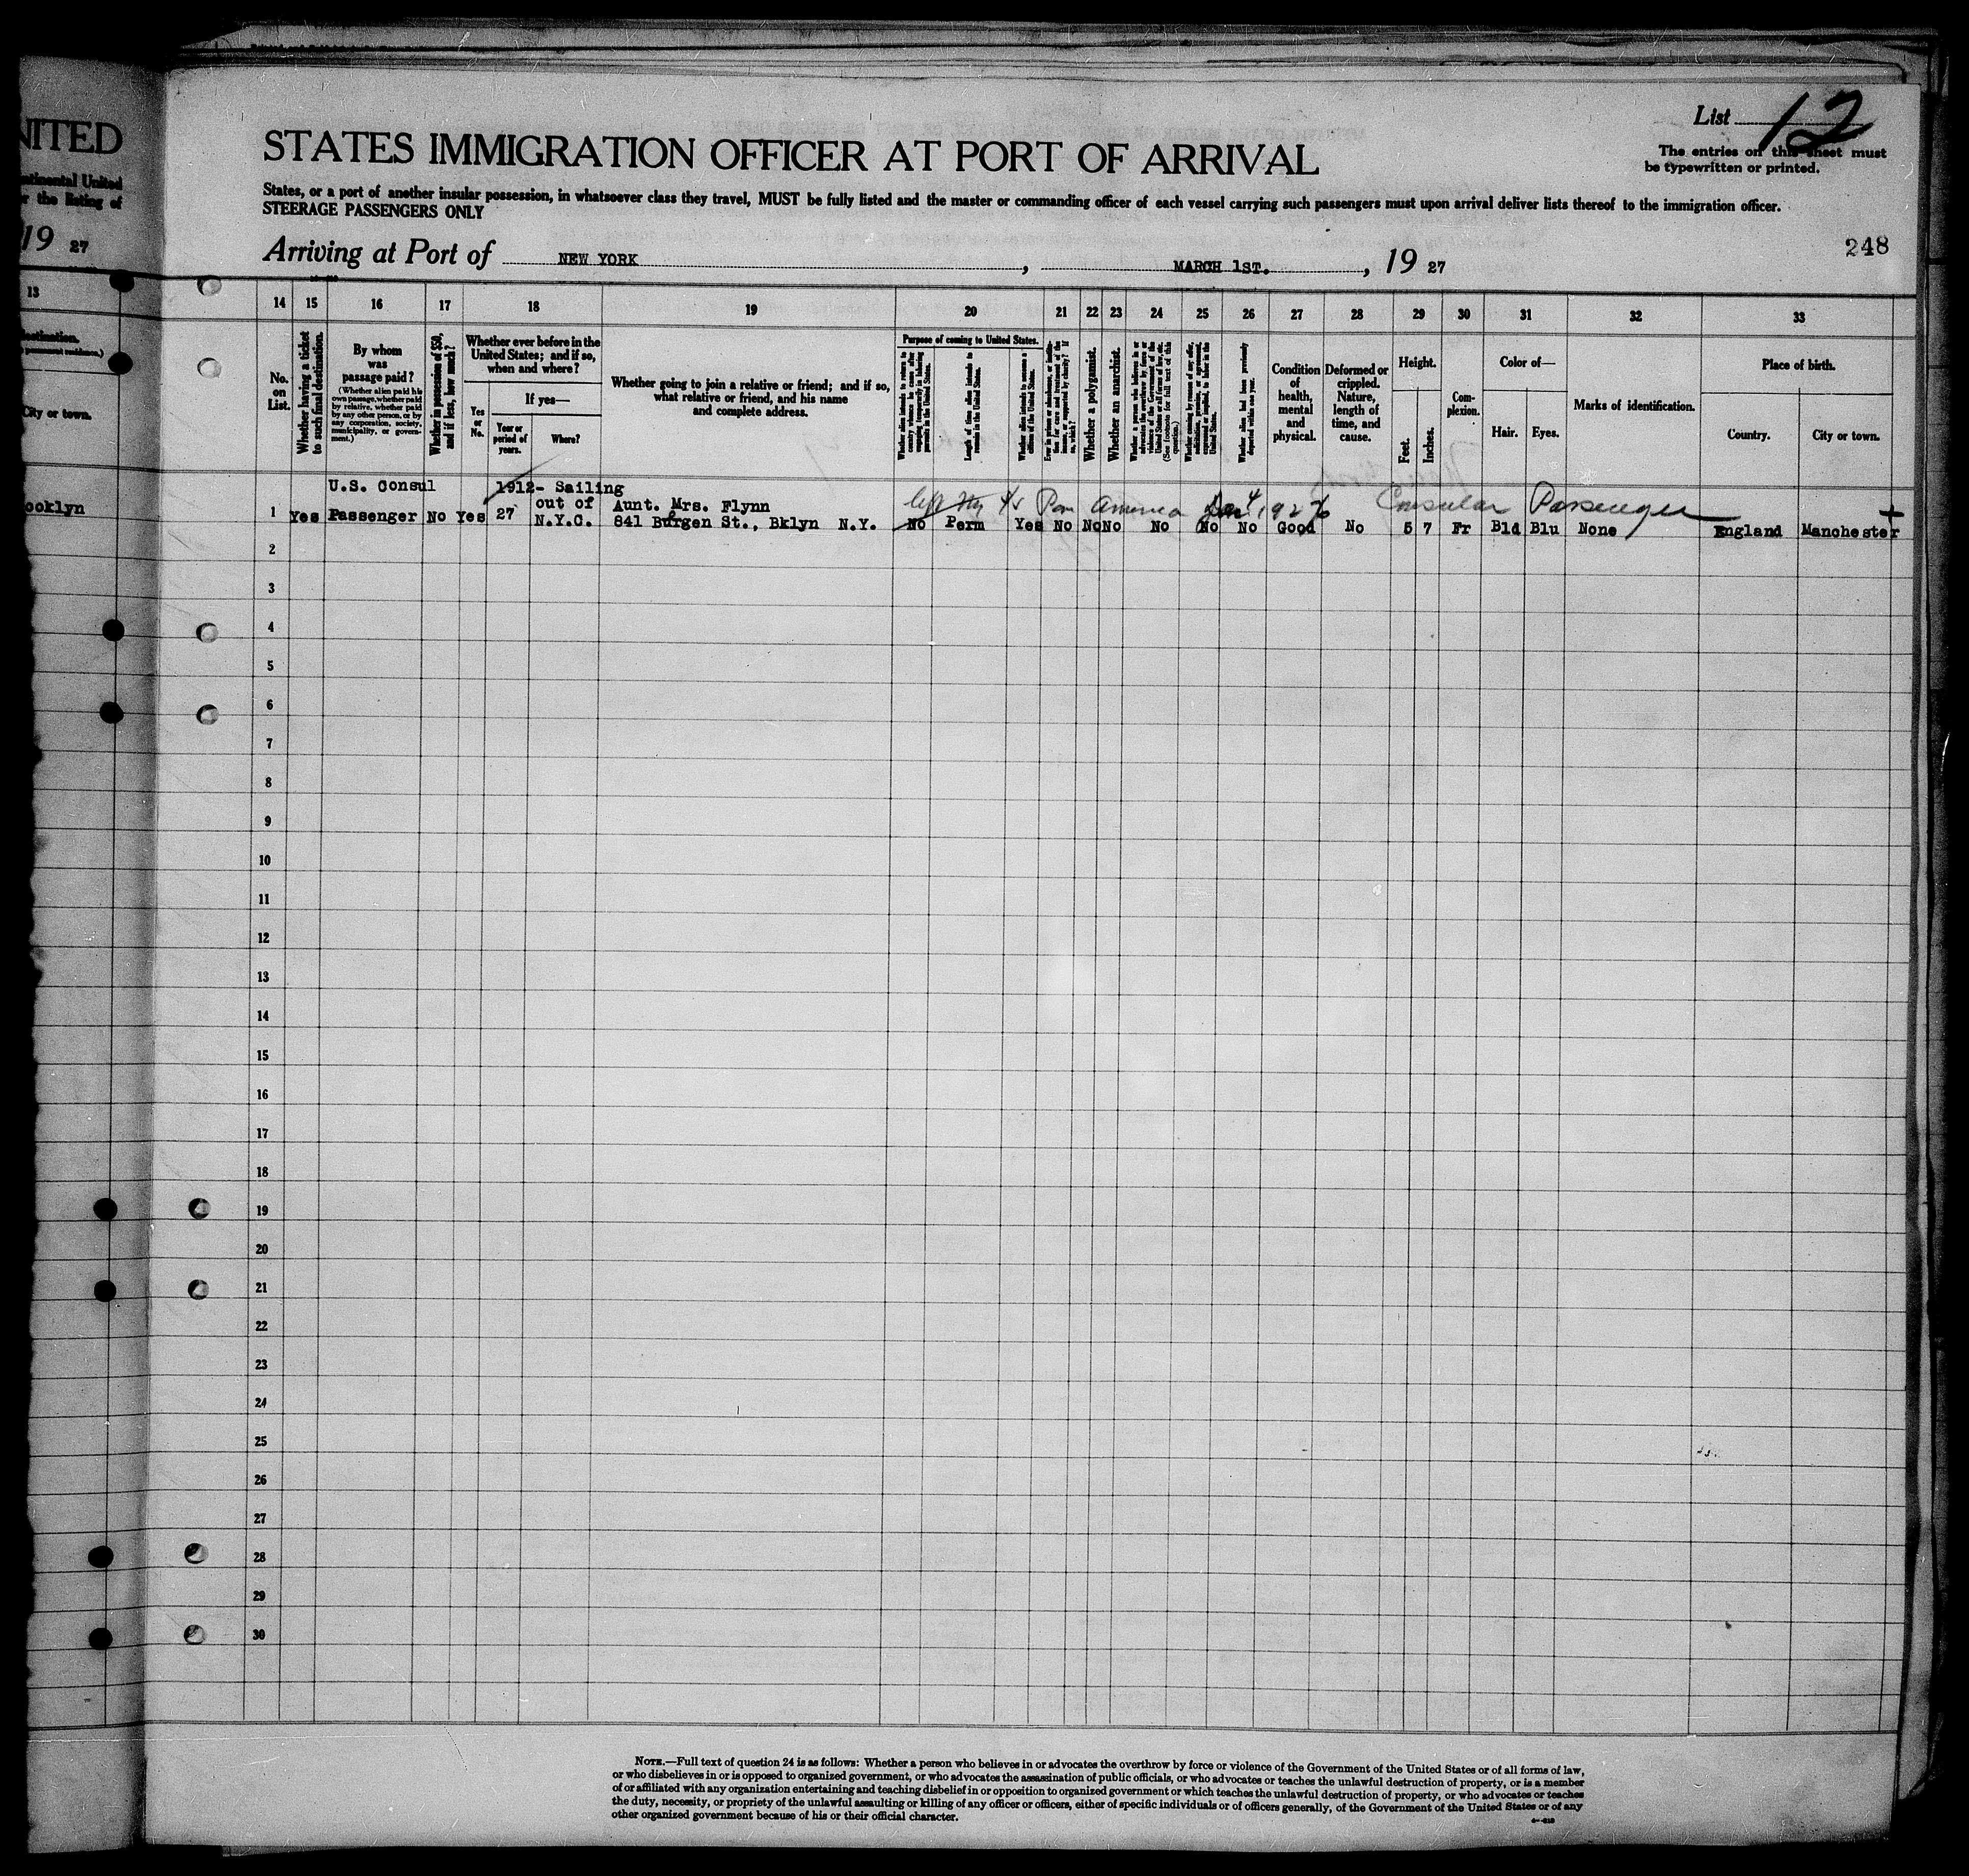 NITED
ntinental United
r the listing of
19 27
13
estination.
City or town.
ooklyn
List 12
The entries on this sheet must
be typewritten or printed.
STATES IMMIGRATION OFFICER AT PORT OF ARRIVAL
States, or a port of another insular possession, in whatsoever class they travel, MUST be fully listed and the master or commanding officer of each vessel carrying such passengers must upon arrival deliver lists thereof to the immigration officer.
STEERAGE PASSENGERS ONLY
248
Arriving at Port of NEW YORK, MARCH 1ST., 19 27
14 15 16 17 18 19 20 21 22 23 24 25 26 27 28 29 30 31 32 33
No. on List.
Whether having a ticket to such final destination.
By whom was passage paid?
(Whether alien paid his own passage, whether paid by relative, whether paid by any other person, or by any corporation, society, municipality, or government.)
Whether in possession of $50, and if less, how much?
Whether ever before in the United States; and if so, when and where?
Yes or No.
If yes—
Year or period of years.
Where?
Whether going to join a relative or friend; and if so, what relative or friend, and his name and complete address.
Purpose of coming to United States.
Length of time alien intends to remain in the United States.
Whether a polygamist.
Whether an anarchist.
Condition of health, mental and physical.
Deformed or crippled. Nature, length of time, and cause.
Height.
Feet.
Inches.
Complexion.
Color of—
Hair.
Eyes.
Marks of identification.
Place of birth.
Country.
City or town.
U.S. Consul 1912- Sailing
out of Aunt. Mrs. Flynn
left S/S Pan America Dec 4, 1926 Consular Passenger
1 Yes Passenger No Yes 27 N.Y.C. 841 Burgen St., Bklyn N.Y. No Perm Yes No No No No No No Good No 5 7 Fr Bld Blu None England Manchester
2
3
4
5
6
7
8
9
10
11
12
13
14
15
16
17
18
19
20
21
22
23
24
25
26
27
28
29
30
NOTE.—Full text of question 24 is as follows: Whether a person who believes in or advocates the overthrow by force or violence of the Government of the United States or of all forms of law,
or who disbelieves in or is opposed to organized government, or who advocates the assassination of public officials, or who advocates or teaches the unlawful destruction of property, or is a member
of or affiliated with any organization entertaining and teaching disbelief in or opposition to organized government or which teaches the unlawful destruction of property, or who advocates or teaches
the duty, necessity, or propriety of the unlawful assaulting or killing of any officer or officers, either of specific individuals or of officers generally, of the Government of the United States or of any
other organized government because of his or their official character.